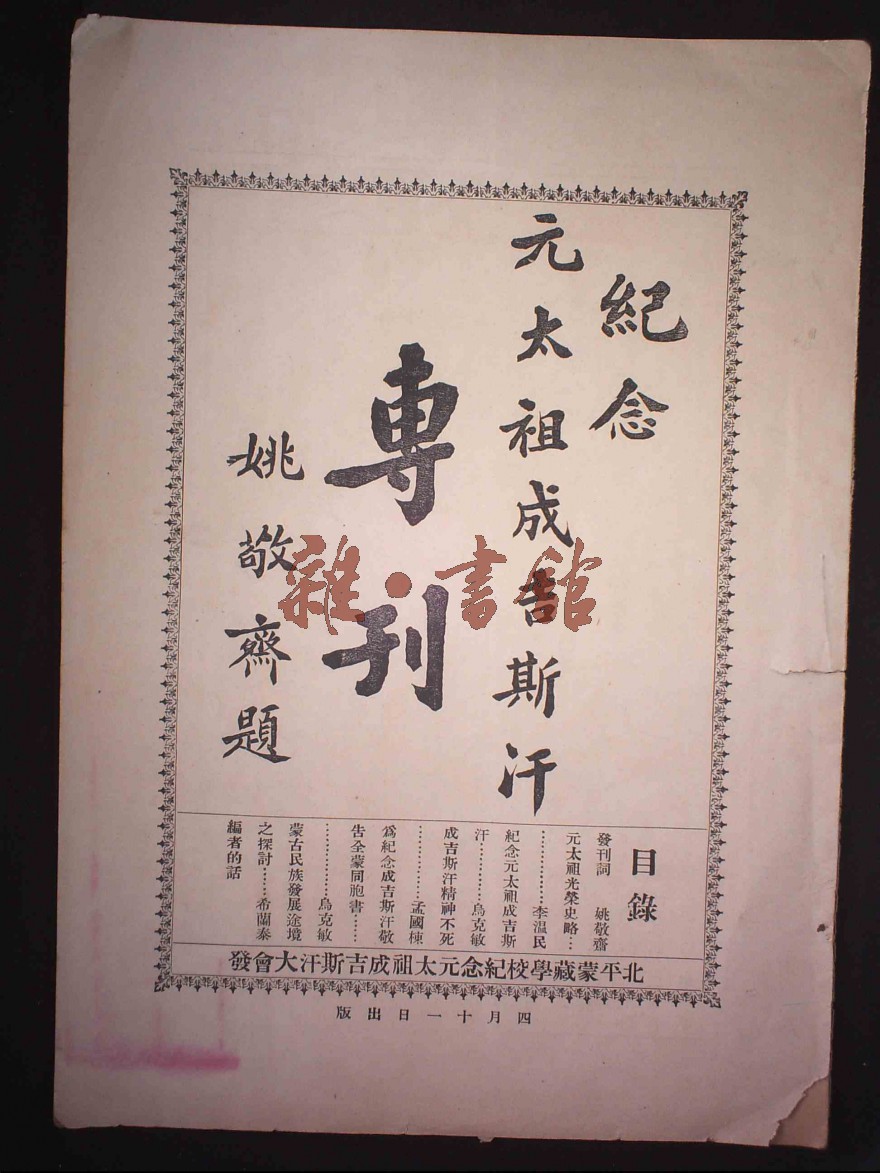 紀念
元太祖成吉斯汗
專刊
姚敬齋題
雜·書舘
目錄
發刊詞　姚敬齋
元太祖光榮史略…
…………李溫民
紀念元太祖成吉斯
汗………烏克敏
成吉斯汗精神不死
…………孟國棟
爲紀念成吉斯汗敬
告全蒙同胞書……
…………烏克敏
蒙古民族發展途境
之探討……希蘭泰
編者的話
北平蒙藏學校紀念元太祖成吉斯汗大會發
四月十一日出版